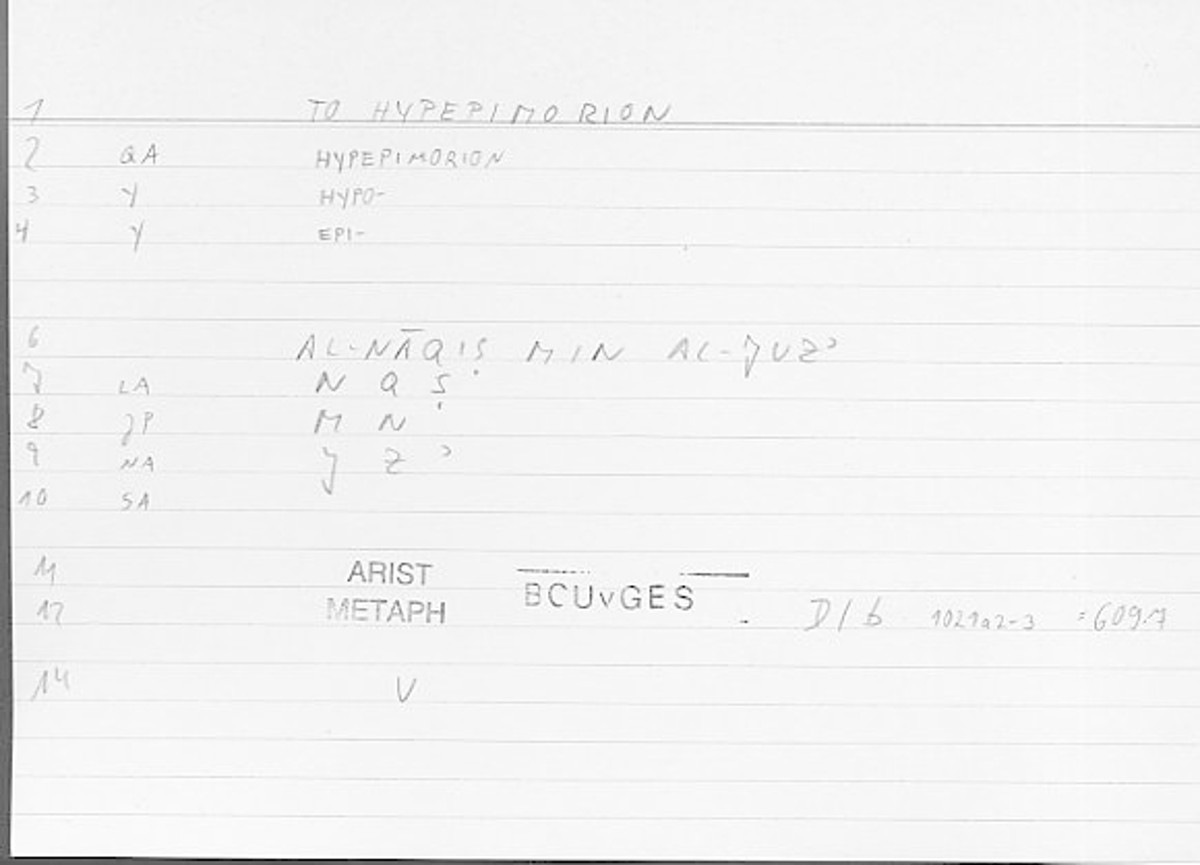 1 TO HYPEPIMORION
2 QA HYPEPIMORION
3 Y HYPO-
4 Y EPI-
6 AL-NĀQIṢ MIN AL-JUZʾ
7 LA N Q Ṣ
8 JP M N
9 NA J Z ʾ
10 SA
11 ARIST BCUvGES
12 METAPH . D/b 1021a2-3 =609.7
14 V